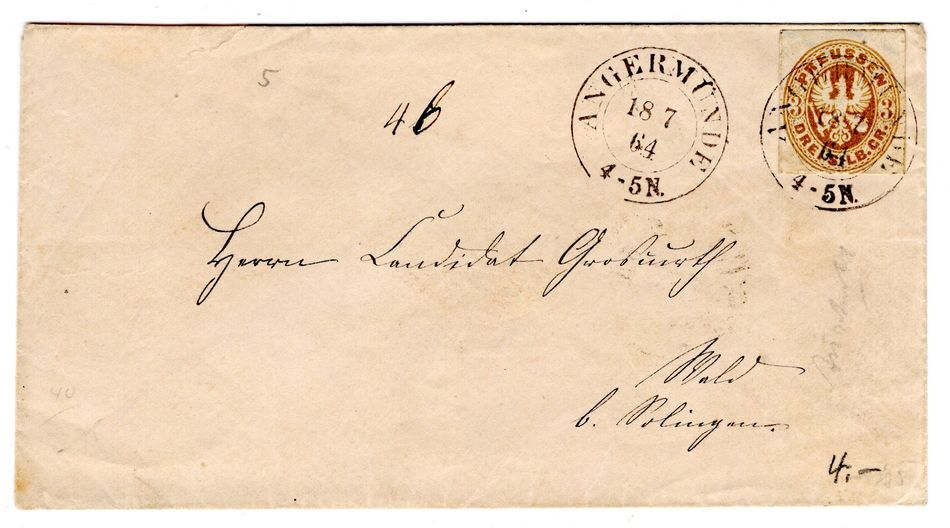 5
46
ANGERMÜNDE
18 7
64
4-5N.
PREUSSEN
3 3
DREI SILB.GR.
18 7
64
4-5N.
Herrn Candidat Groscurth
Wald
b. Solingen.
40
4.-